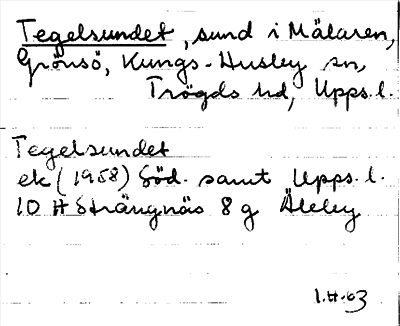 Tegelsundet, sund i Mälaren,
Grönsö, Kungs-Husby sn,
Trögds hd, Upps. l.
Tegelsundet
ek (1958) Söd. samt Upps. l.
10 H Strängnäs 8 g
1.H.63